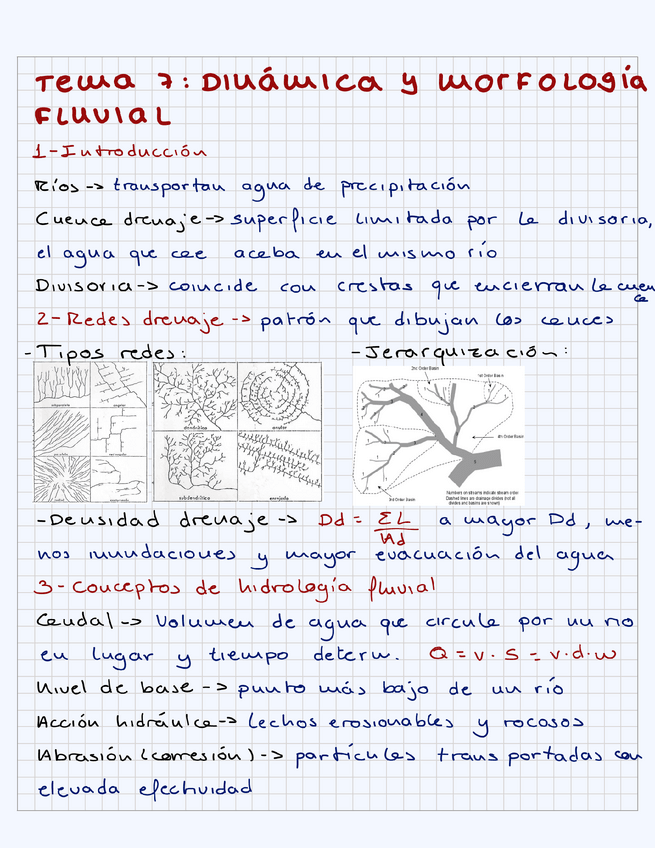 Tema 7: Dinámica y morfología
fluvial
1-Introducción
Ríos -> transportan agua de precipitación
Cuenca drenaje -> superficie limitada por la divisoria,
el agua que cae acaba en el mismo río
Divisoria -> coincide con crestas que encierran la cuen
ca
2-Redes drenaje -> patrón que dibujan los cauces
-Tipos redes:
-Jerarquización:
2nd Order Basin
1st Order Basin
4th Order Basin
3rd Order Basin
Numbers on streams indicate stream order
Dashed lines are drainage divides (not all
divides and basins are shown)
dendrítica
anular
subdendrítica
-Densidad drenaje -> Dd = ΣL/Ad a mayor Dd, me-
nos inundaciones y mayor evacuación del agua
3-Conceptos de hidrología fluvial
Caudal -> Volumen de agua que circula por un río
en lugar y tiempo determ. Q = v · S = v · d · w
Nivel de base -> punto más bajo de un río
Acción hidráulca -> lechos erosionables y rocosos
Abrasión (corresión) -> partículas transportadas con
elevada efectividad